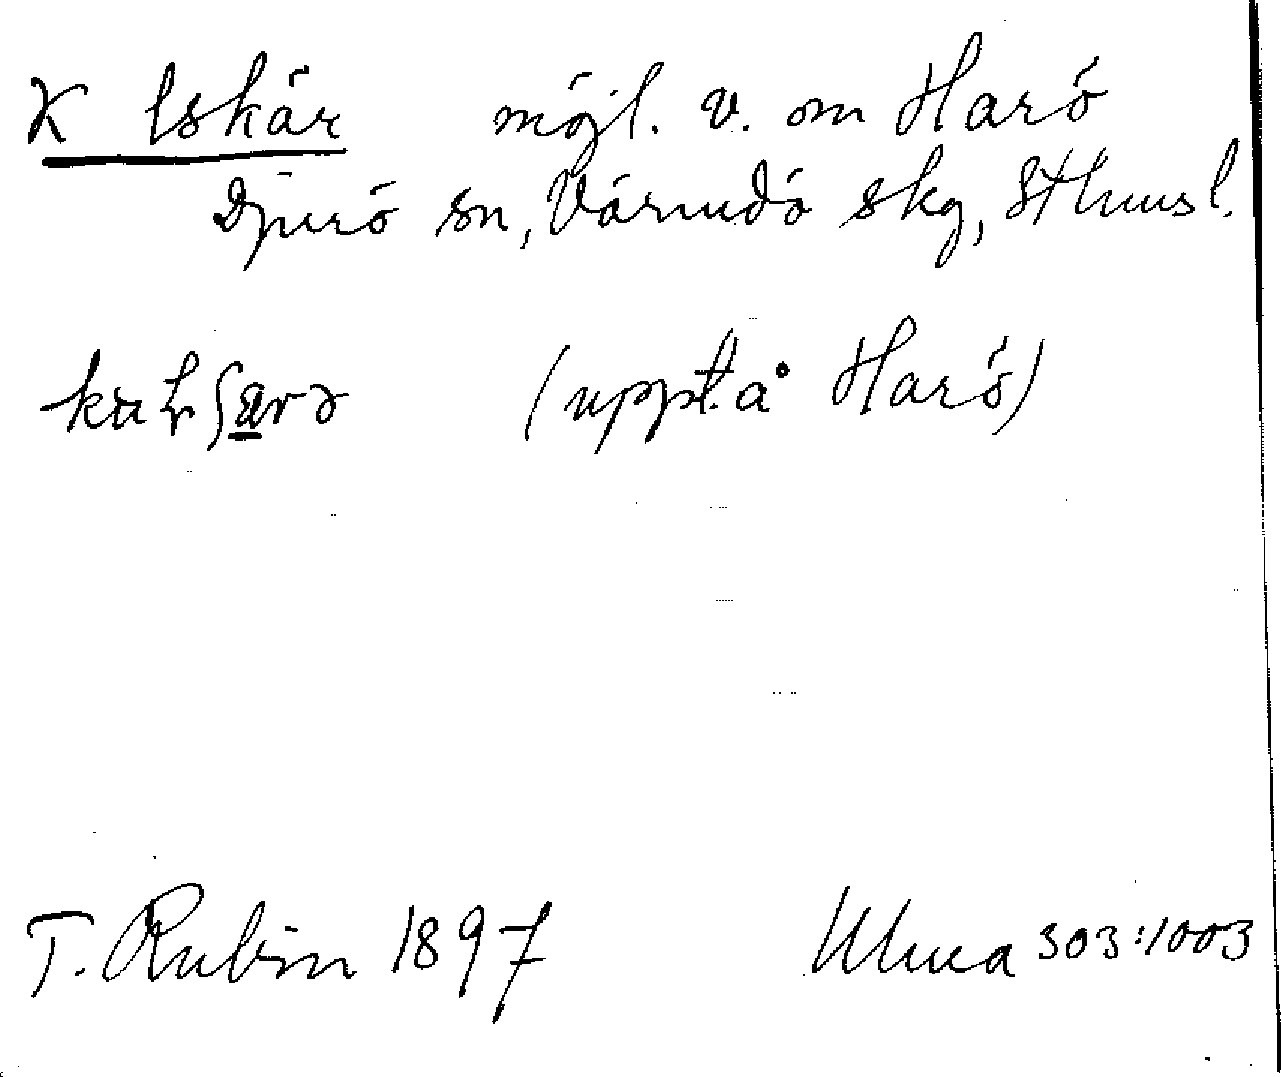 K lskär möjl. v. om Harö
Djurö sn, Värmdö skg, Sthms l.
(uppt. å Harö)
T. Rubin 1897 Uluua 303:1003